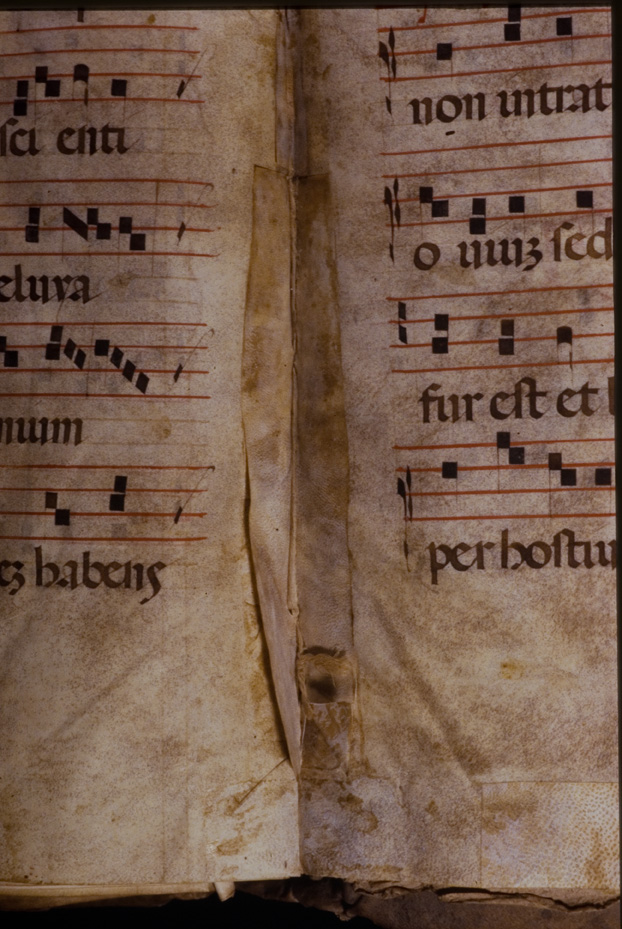 sci enti
eluya
nuum
ez habens
non intrat
o uiuꝫ sed
fur est et
per hostiu